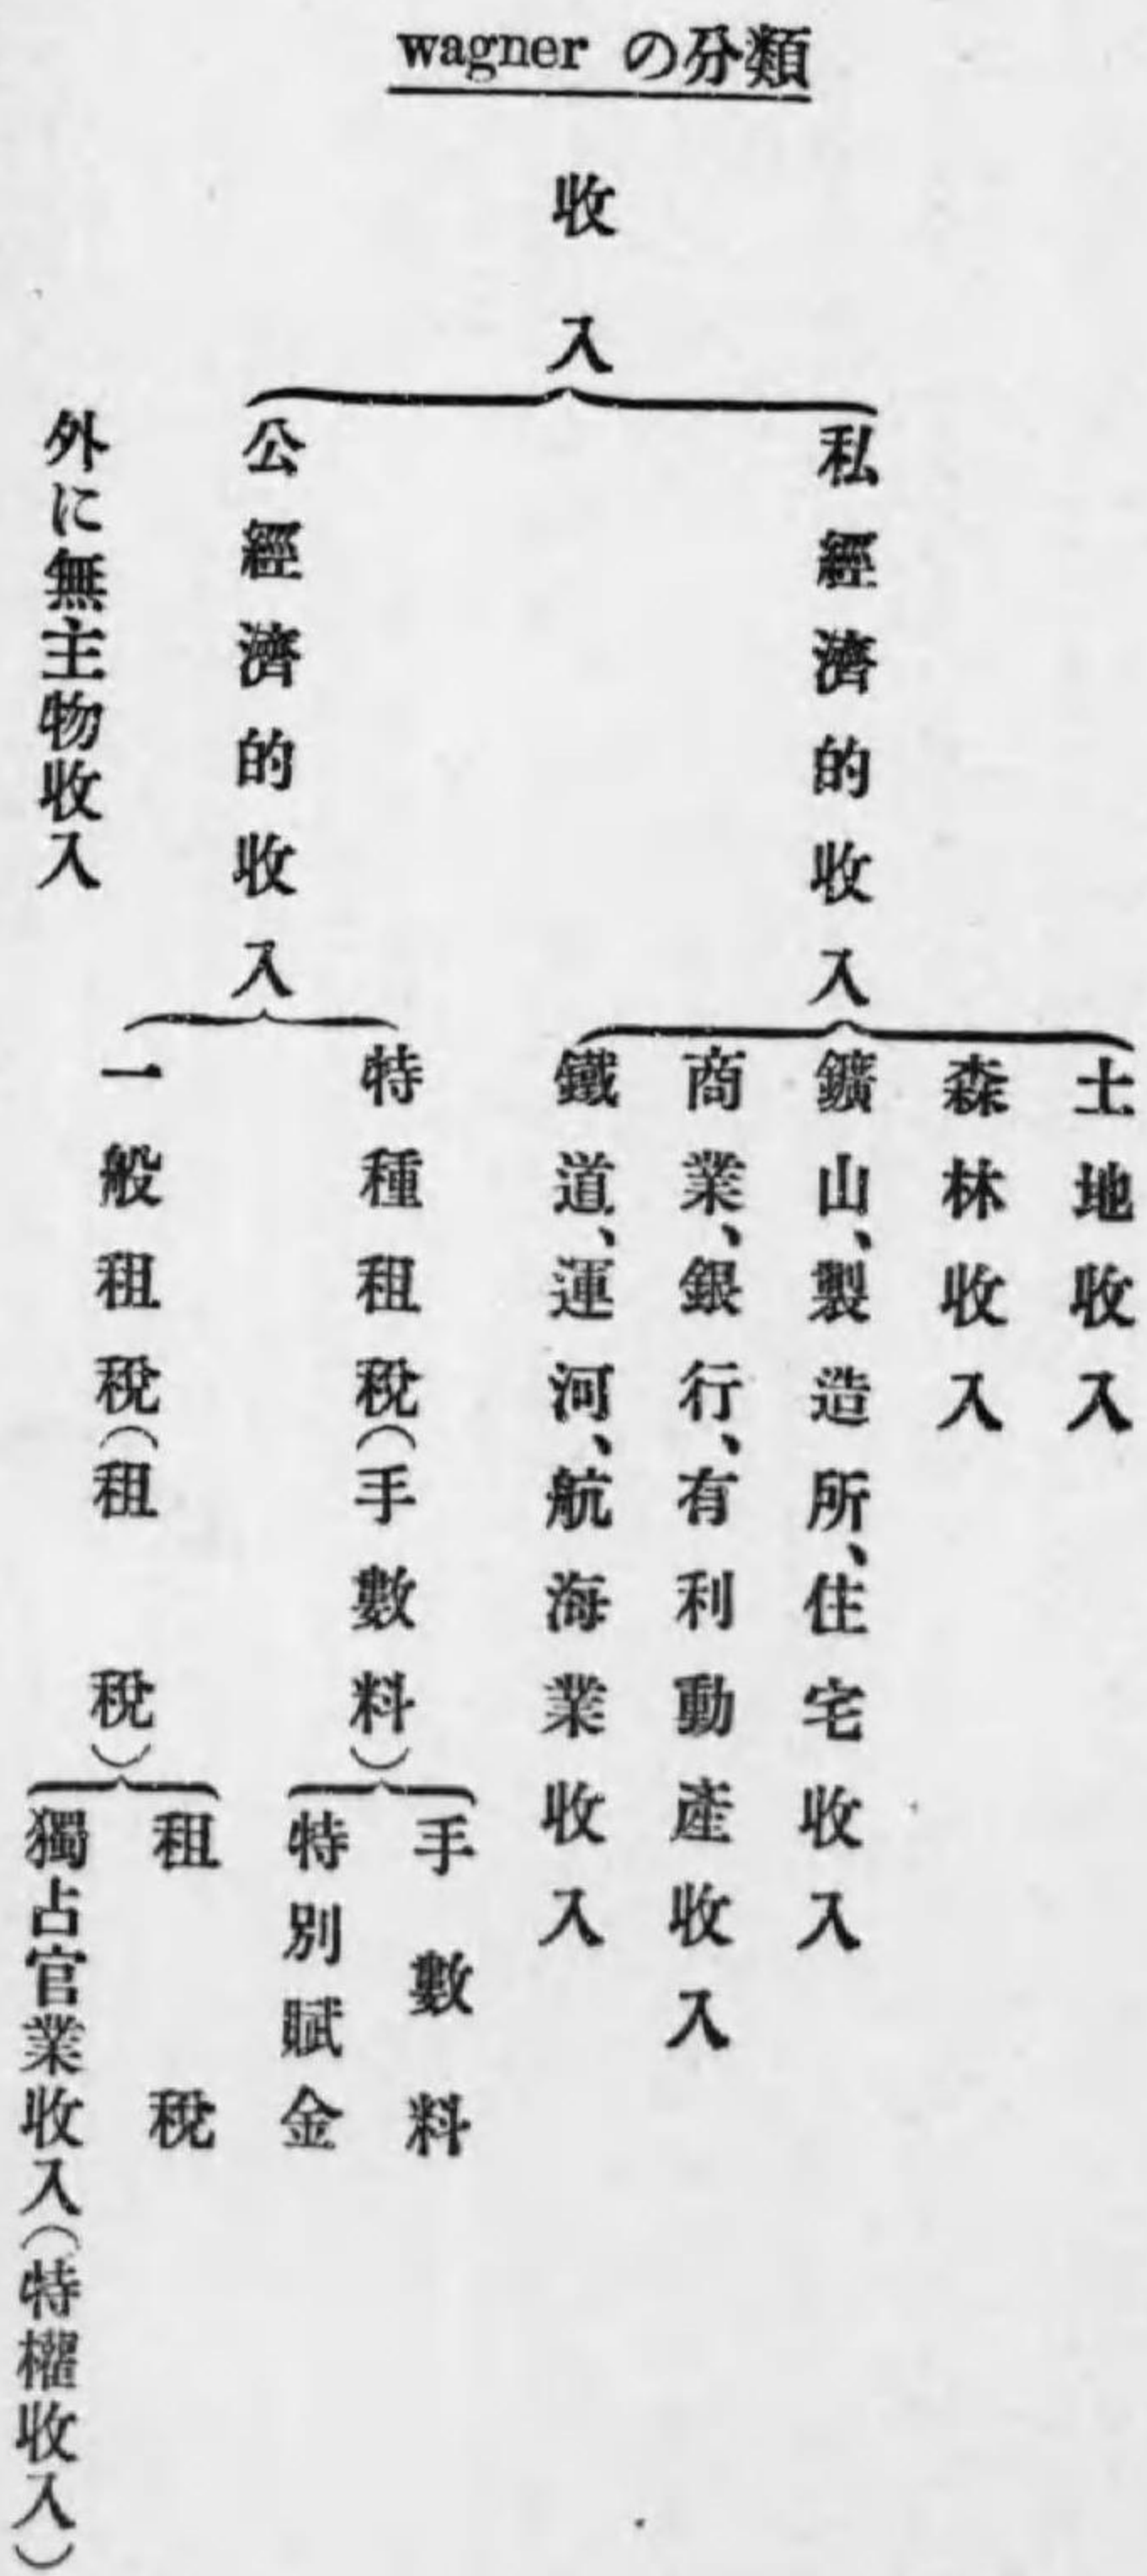 wagner の分類
收入
私經濟的收入
土地收入
森林收入
鑛山、製造所、住宅收入
商業、銀行、有利動產收入
鐵道、運河、航海業收入
公經濟的收入
特種租稅(手數料)
手數料
特別賦金
一般租稅(租稅)
租稅
獨占官業收入(特權收入)
外に無主物收入